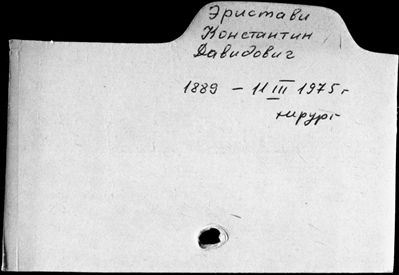 Эристави
Константин
Давидович
1889 – 11 III 1975 г
хирург